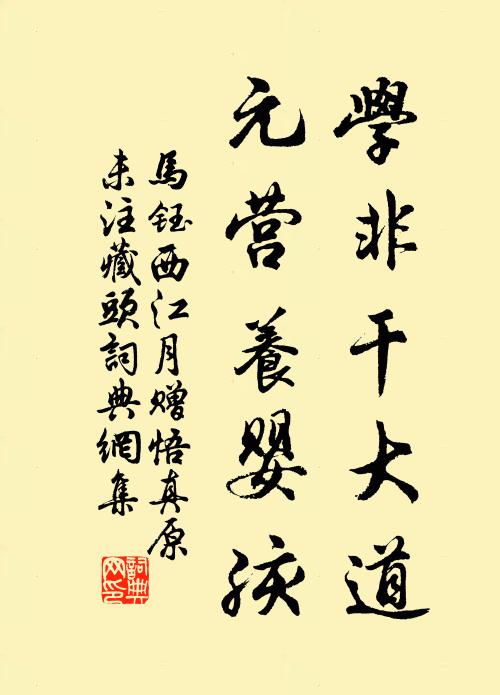 學非干大道
元营養婴孩
馬鈺西江月赠悟真原
未注藏頭詞典網集
詞典网印